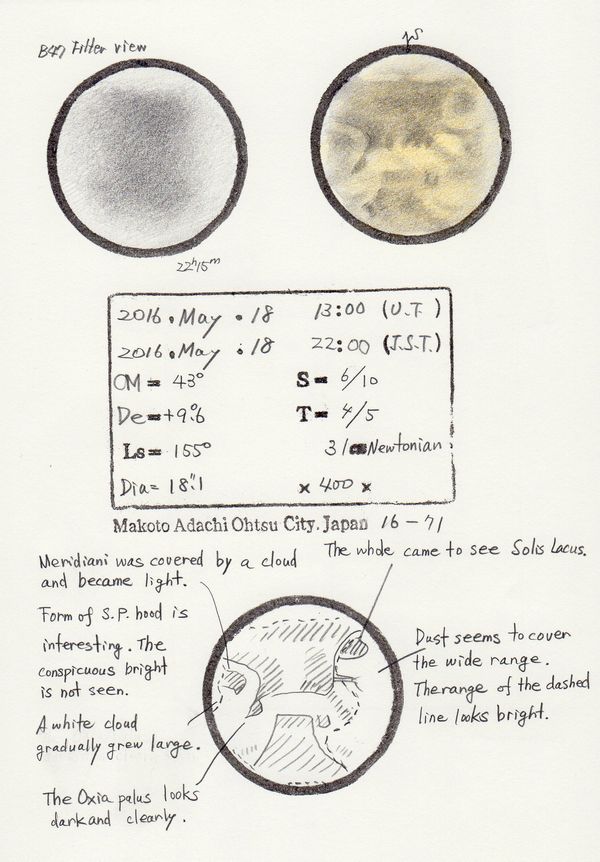 B47 Filter view
↑S
22ʰ15ᵐ
2016. May . 18 13:00 (U.T.)
2016. May . 18 22:00 (J.S.T.)
CM= 43° S= 6/10
De=+9.°6 T= 4/5
Ls= 155° 31cm Newtonian
Dia= 18".1 × 400 ×
Makoto Adachi Ohtsu City. Japan 16-71
Meridiani was covered by a cloud
and became light.
The whole came to see Solis Lacus.
Form of S.P. hood is
interesting. The
conspicuous bright
is not seen.
Dust seems to cover
the wide range.
The range of the dashed
line looks bright.
A white cloud
gradually grew large.
The Oxia palus looks
dark and clearly.